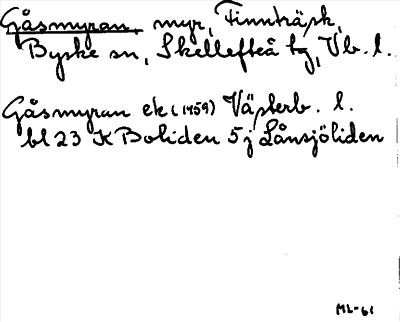 Gåsmyran, myr, Finnträsk,
Byske sn, Skellefteå tg, Vb. l.
Gåsmyran ek (1959) Västerb. l.
bl 23 K Boliden 5j Långsjöliden
ML-61